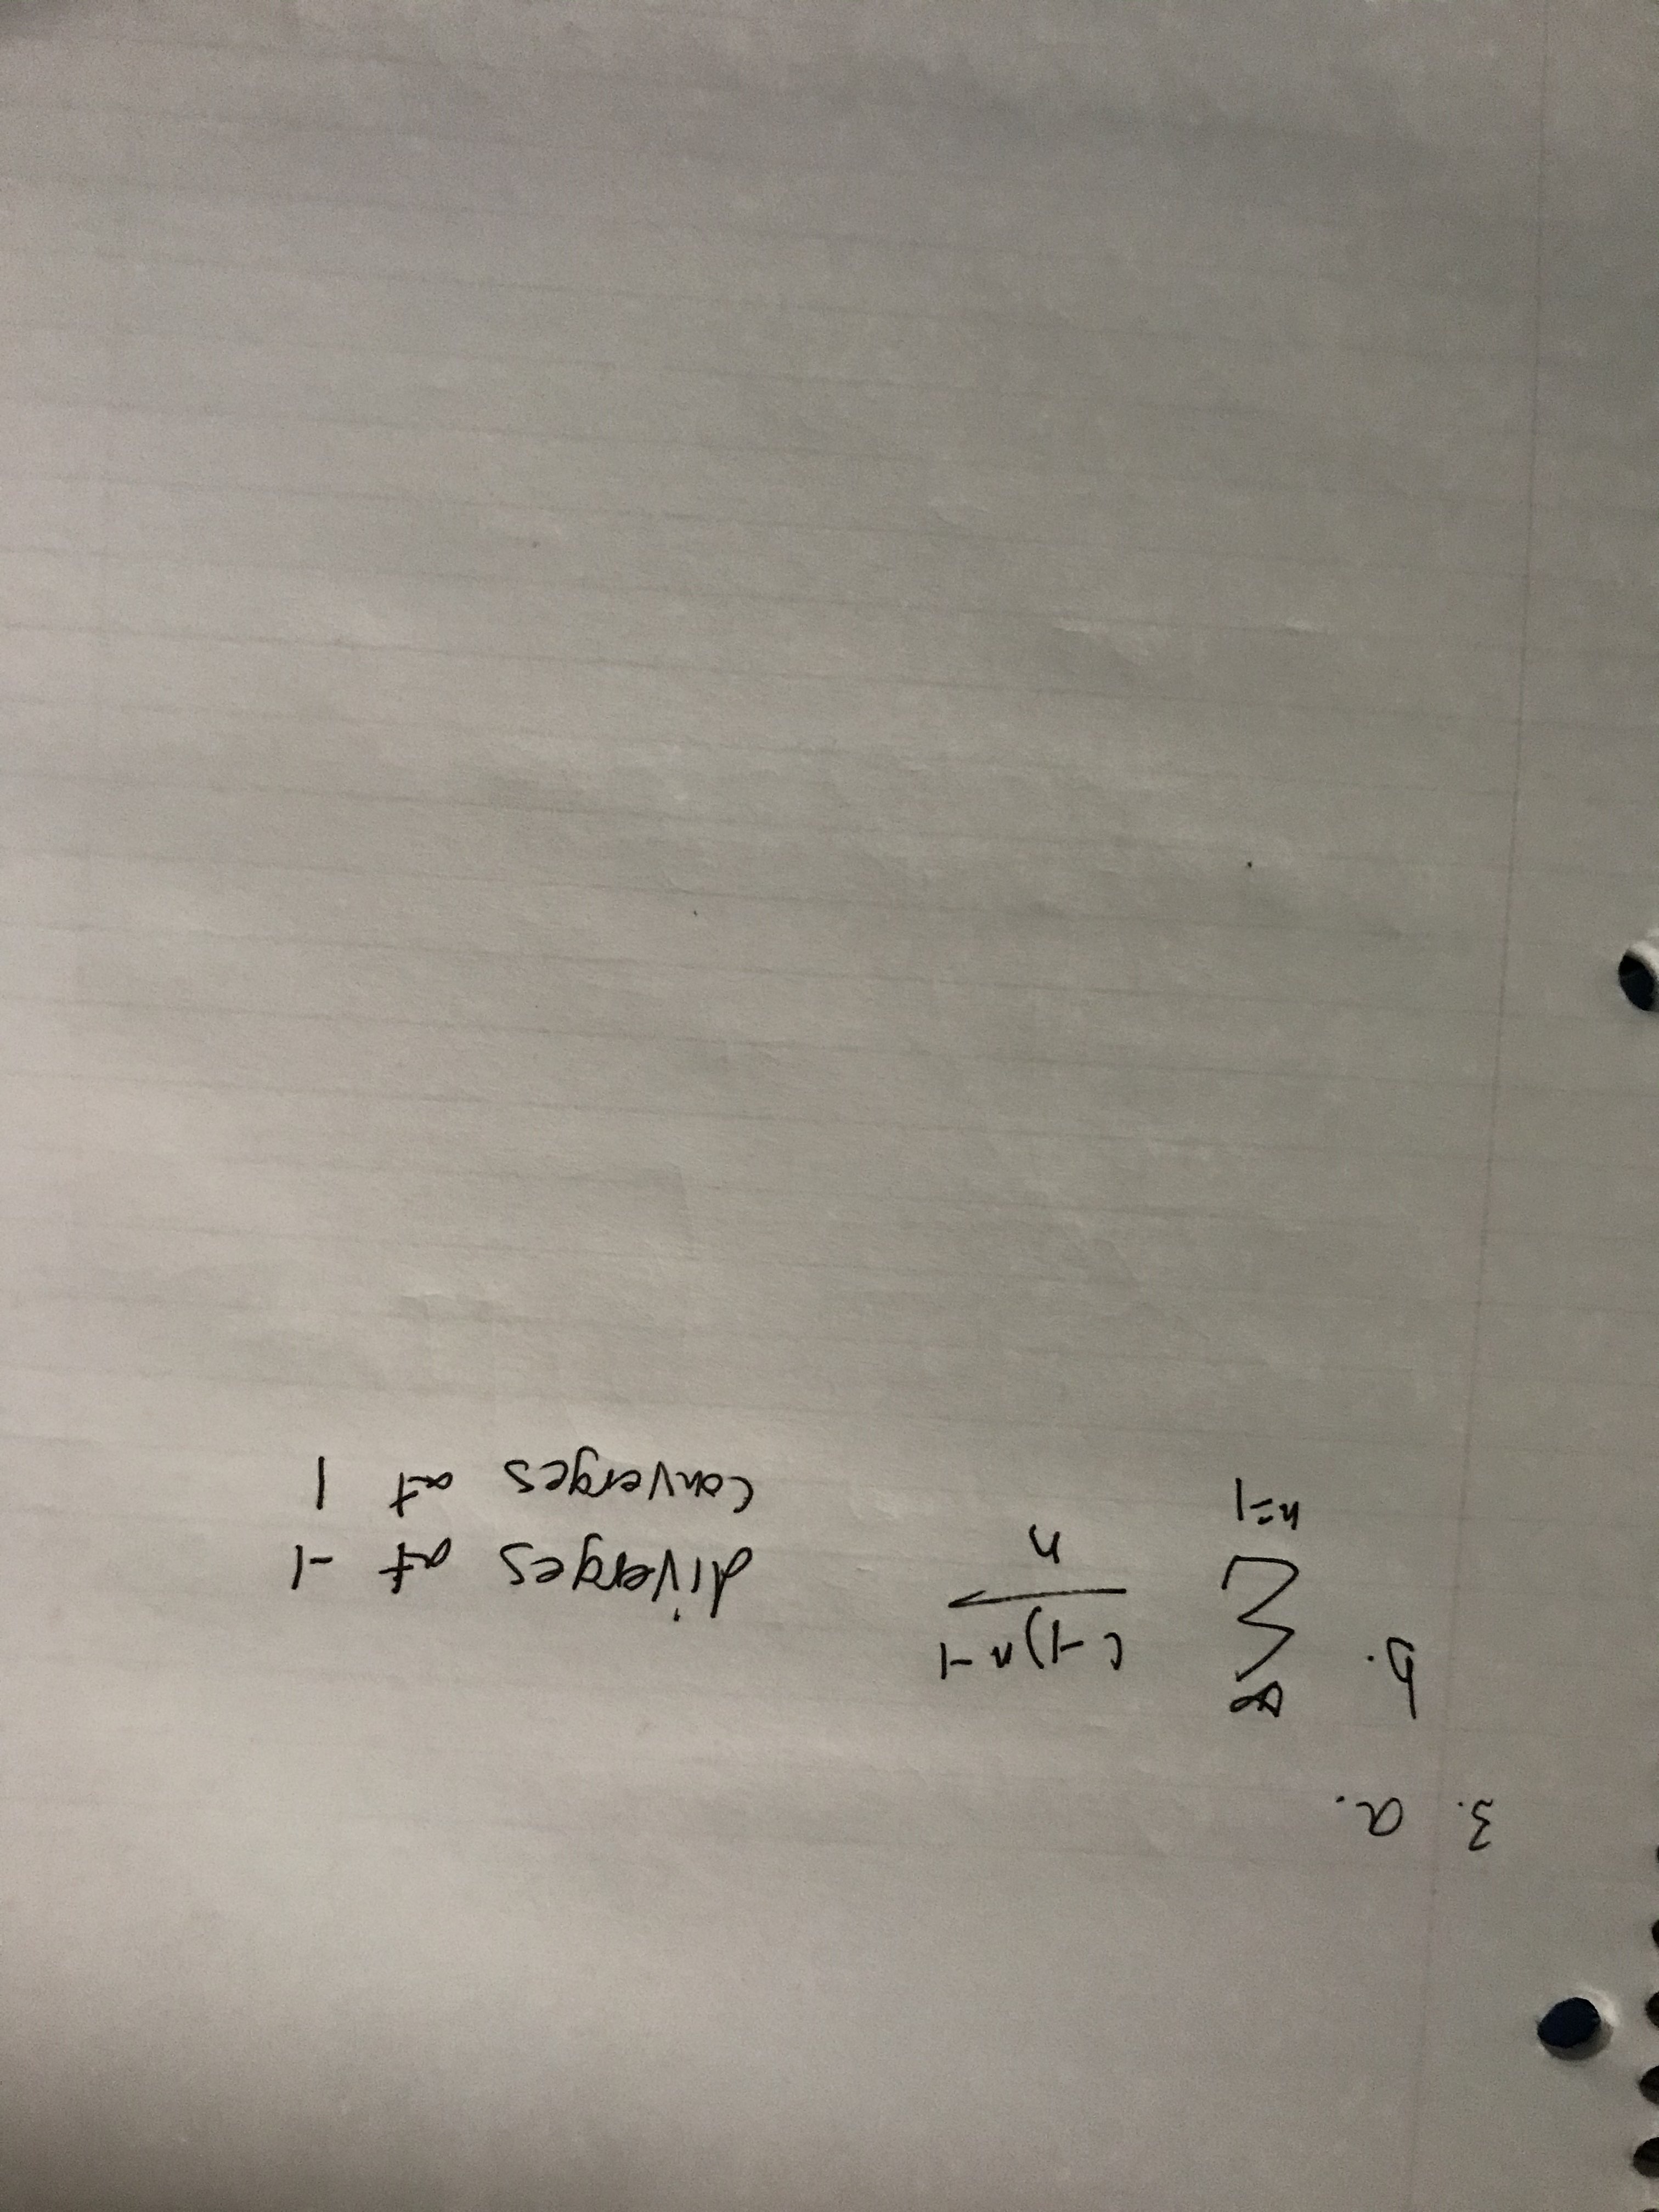 3. a.
b. ∞ Σ n=1 (-1)n-1 / n
diverges at -1
converges at 1